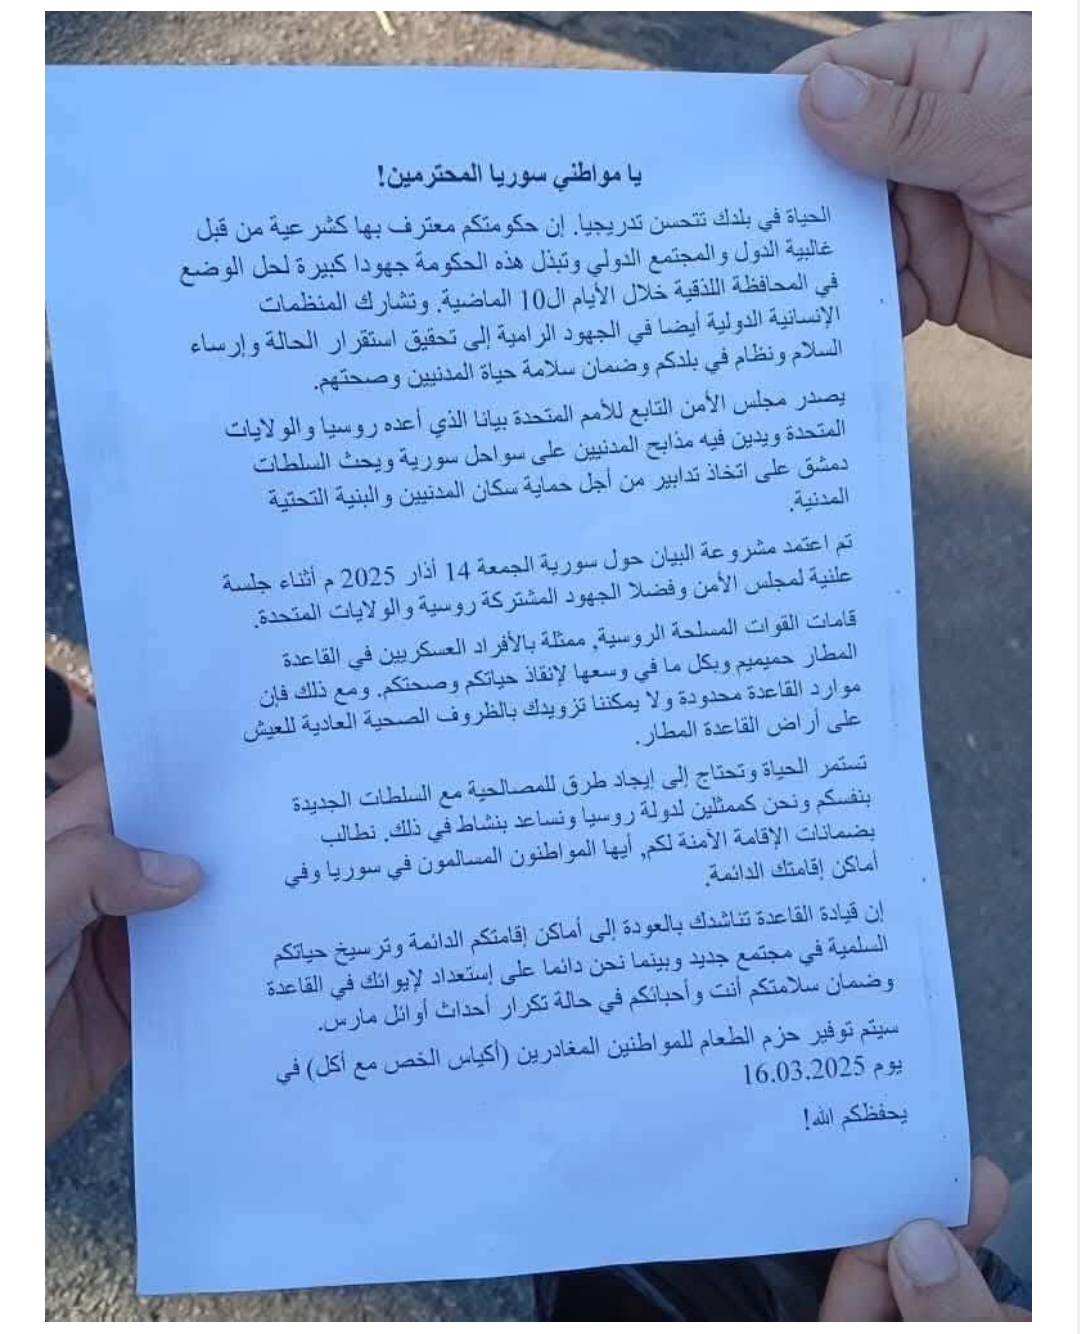 يا مواطني سوريا المحترمين!
الحياة في بلدك تتحسن تدريجيا. إن حكومتكم معترف بها كشرعية من قبل
غالبية الدول والمجتمع الدولي وتبذل هذه الحكومة جهودا كبيرة لحل الوضع
في المحافظة اللذقية خلال الأيام ال10 الماضية. وتشارك المنظمات
الإنسانية الدولية أيضا في الجهود الرامية إلى تحقيق استقرار الحالة وإرساء
السلام ونظام في بلدكم وضمان سلامة حياة المدنيين وصحتهم.
يصدر مجلس الأمن التابع للأمم المتحدة بيانا الذي أعده روسيا والولايات
المتحدة ويدين فيه مذابح المدنيين على سواحل سورية ويحث السلطات
دمشق على اتخاذ تدابير من أجل حماية سكان المدنيين والبنية التحتية
المدنية.
تم اعتمد مشروعة البيان حول سورية الجمعة 14 أذار 2025 م أثناء جلسة
علنية لمجلس الأمن وفضلا الجهود المشتركة روسية والولايات المتحدة.
قامات القوات المسلحة الروسية, ممثلة بالأفراد العسكريين في القاعدة
المطار حميميم وبكل ما في وسعها لإنقاذ حياتكم وصحتكم. ومع ذلك فإن
موارد القاعدة محدودة ولا يمكننا تزويدك بالظروف الصحية العادية للعيش
على أراض القاعدة المطار.
تستمر الحياة وتحتاج إلى إيجاد طرق للمصالحية مع السلطات الجديدة
بنفسكم ونحن كممثلين لدولة روسيا ونساعد بنشاط في ذلك. نطالب
بضمانات الإقامة الآمنة لكم, أيها المواطنون المسالمون في سوريا وفي
أماكن إقامتك الدائمة.
إن قيادة القاعدة تناشدك بالعودة إلى أماكن إقامتكم الدائمة وترسيخ حياتكم
السلمية في مجتمع جديد وبينما نحن دائما على إستعداد لإيوائك في القاعدة
وضمان سلامتكم أنت وأحبائكم في حالة تكرار أحداث أوائل مارس.
سيتم توفير حزم الطعام للمواطنين المغادرين (أكياس الخص مع أكل) في
يوم 16.03.2025
يحفظكم الله!